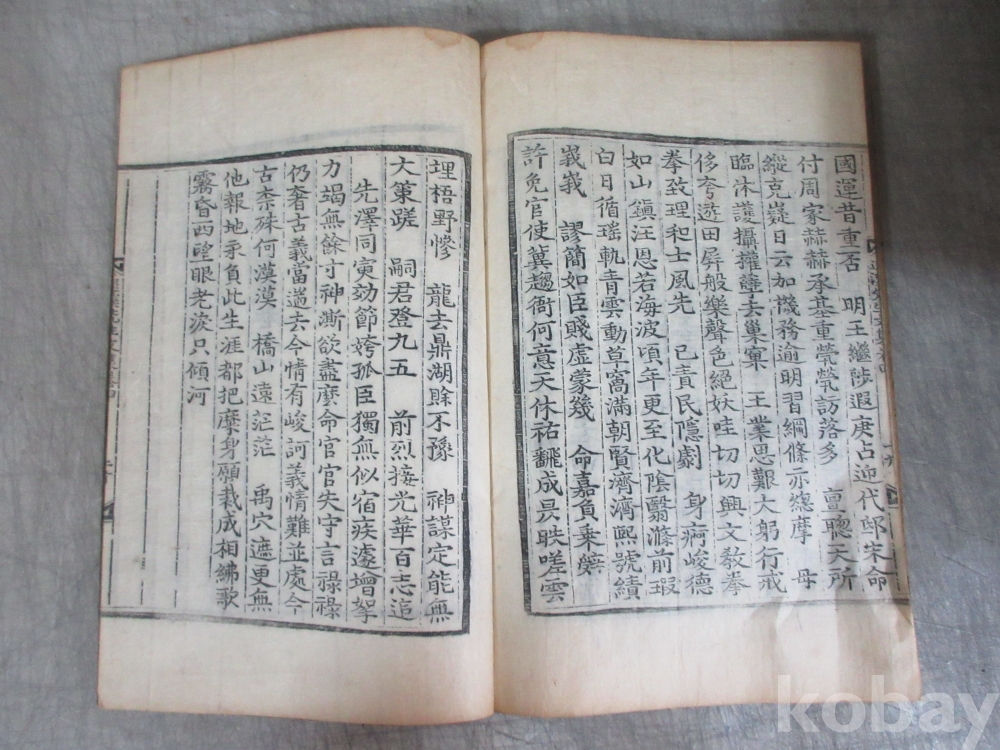 國運昔重否 明王繼陟遐庚占迎代邸芒命
付周家赫赫承基重煢煢訪落多 亶聰天所
縱克嶷日云加機務逾明習綱條亦總摩 母
臨沐護攝權薛去巢窠 王業思艱大躬行戒
侈夸遊田屛般樂聲色絕妖哇切切興文教拳
拳致理和士風先 己責民隱劇 身痾峻德
如山鎭汪恩若海波頃年更至化陰翳滌前瑕
白日循瑤軌靑雲動草窩滿朝賢濟濟熙號績
峩峩 謬簡如臣賤虛蒙幾 命嘉負乘
許免官使冀趨衙何意天休祐飜成昃昳嗟雲
埋梧野慘 龍去鼎湖賖不豫 神謀定能無
大策蹉 嗣君登九五 前烈接光華百志追
先澤同寅効節姱孤臣獨無似宿疾遽增拏
力竭無餘寸神澌欲盡麽命官官失守言祿祿
仍奢古義富過去今情有峻訶義情難並處今
古柰殊何漠漠 橋山遠茫茫 禹穴遮更無
他報地永負此生涯都把糜身願栽成相紼歌
霧昏西望眼老淚只傾河
kobay